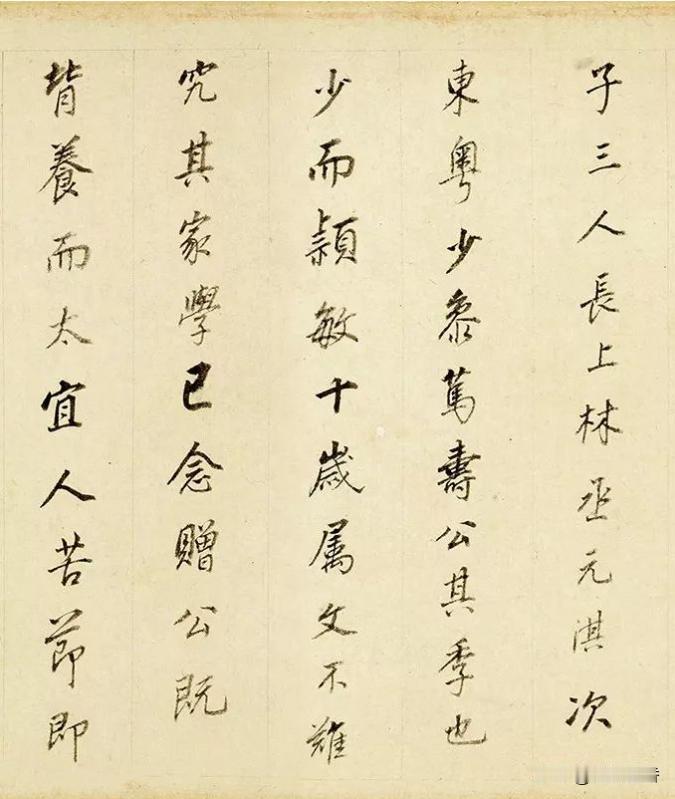 子三人長上林丞元淇次
東粵少叅篤壽公其季也
少而穎敏十歲属文不難
究其家學已念贈公既
背養而太宜人苦節即